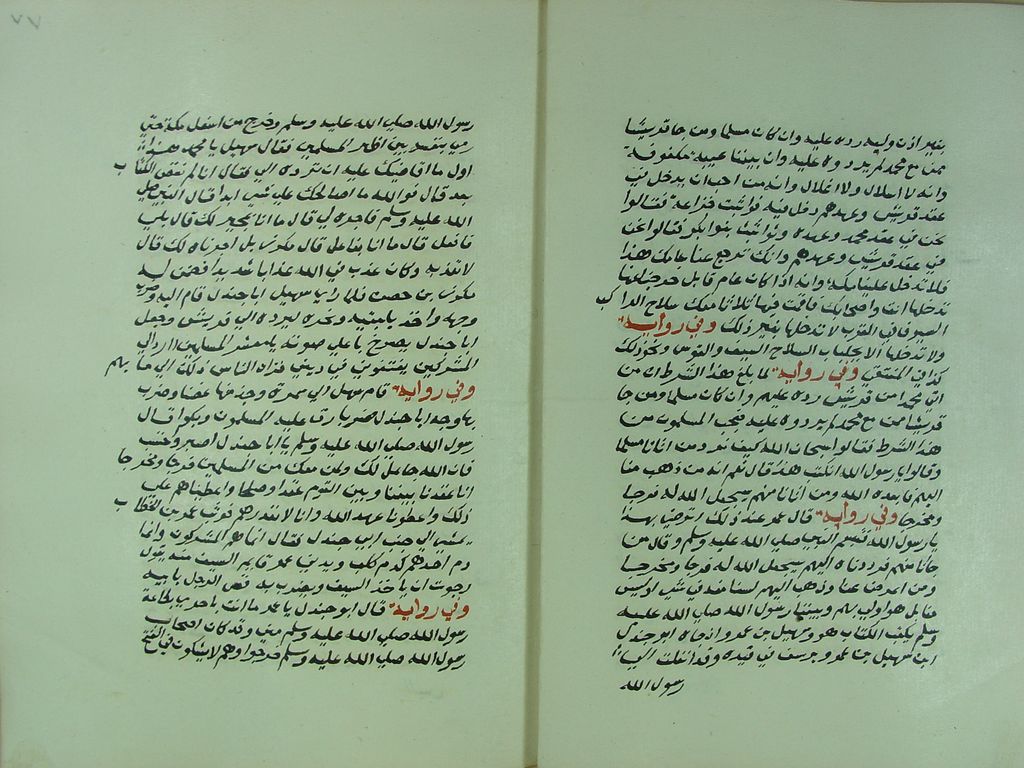 بغير اذن وليه رده عليه وان كان مسلما ومن جا قريشا
ممن مع محمد لم يردوه عليه وان بيننا عيبة مكفوفة
وانه لا اسلال ولا اغلال وانه من احب ان يدخل في
عقد قريش وعهدهم دخل فيه فواثبت خزاعة فقالوا
نحن في عقد محمد وعهده وتواثبت بنوا بكر فقالوا نحن
في عقد قريش وعهدهم وانك ترجع عنا عامك هذا
فلا تدخل علينا مكة وانه اذا كان عام قابل خرجنا عنها
تدخلها انت واصحابك فاقمت فيها ثلاثا معك سلاح الراكب
السيوف في القرب لا تدخلها بغير ذلك وفي رواية
ولا تدخلها الا بجلباب السلاح السيف والقوس ونحو ذلك
كذا في المنتقى وفي رواية لما بلغ هذا الشرط ان من
اتى محمدا من قريش رده عليهم وان كان مسلما ومن جا
قريشا ممن مع محمد لم يردوه عليه فعجب المسلمون من
هذا الشرط فقالوا سبحان الله كيف نرد من اتانا مسلما
وقالوا يا رسول الله انكتب هذا قال نعم انه من ذهب منا
اليهم فابعده الله ومن اتانا منهم سيجعل الله له فرجا
ومخرجا وفي رواية قال عمر عند ذلك اترضى بهذا
يا رسول الله فتبسم النبي صلى الله عليه وسلم وقال من
جانا منهم فرددناه اليهم سيجعل الله له فرجا ومخرجا
ومن اعرض عنا وذهب اليهم لسنا منه في شي وليس
منا بل هو اولى بهم وبينا رسول الله صلى الله عليه
وسلم يكتب الكتاب هو وسهيل بن عمرو اذ جاه ابو جندل
ابن سهيل بن عمرو يرسف في قيده وقد انفلت الى
رسول الله
رسول الله صلى الله عليه وسلم وخرج من اسفل مكة حتى
رمى بنفسه بين اظهر المسلمين فقال سهيل يا محمد هذا
اول ما اقاضيك عليه ان ترده الي فقال انا لم نقض الكتاب
بعد قال فوالله ما اصالحك على شي ابدا قال النبي صلى
الله عليه وسلم فاجره لي قال ما انا بمجيره لك قال بلى
فافعل قال ما انا بفاعل قال مكرز بل اجرناه لك قال
لا تعذبه وكان عذب في الله عذابا شديدا
مكرز بن حفص فلما راى سهيل ابا جندل قام اليه وضرب
وجهه واخذ بلبته وجره ليرده الى قريش وجعل
ابا جندل يصرخ باعلى صوته يا معشر المسلمين اارد الى
المشركين يفتنوني في ديني فزاد الناس ذلك الى ما بهم
وفي رواية قام سهيل الى سمرة وجز منها غصنا وضرب
به وجه ابا جندل ضربا رق عليه المسلمون وبكوا قال
رسول الله صلى الله عليه وسلم يا ابا جندل اصبر واحتسب
فان الله جاعل لك ولمن معك من المسلمين فرجا ومخرجا
انا عقدنا بيننا وبين القوم عقدا وصلحا واعطيناهم على
ذلك واعطونا عهد الله وانا لا نغدرهم فوثب عمر بن الخطاب
يمشي الى جنب ابي جندل فقال انما هم المشركون وانما
دم احدهم كدم كلب ويدني عمر قايم السيف منه يقول
رجوت ان ياخذ السيف ويضرب به فضن الرجل بابيه
وفي رواية قال ابو جندل يا عمر ما انت باحرى بطاعة
رسول الله صلى الله عليه وسلم مني وقد كان اصحاب
رسول الله صلى الله عليه وسلم خرجوا وهم لا يشكون في الفتح